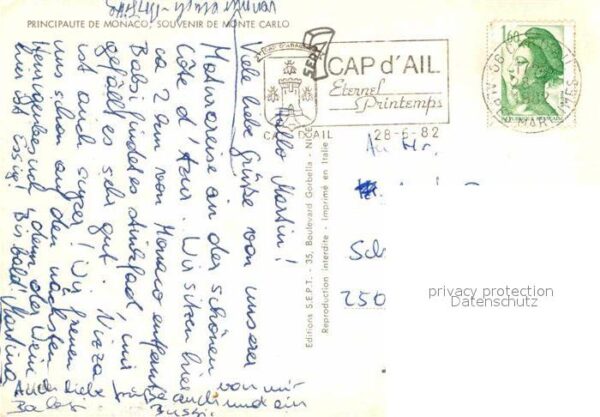 PRINCIPAUTE DE MONACO, SOUVENIR DE MONTE CARLO
CAP d'AIL
Eternel
Printemps
CAP D'AIL
28-6-82
1,60
ALPES MARITIMES
Hallo Martin!
Viele liebe Grüße von unserer
Maturareise an der schönen
Côte d'Azur. Wir sitzen hier
ca 2 km von Monaco entfernt
Babsi findet es stinkfad, mir
gefällt es sehr gut. Nizza
ist auch super! Wir freuen
uns schon auf den nächsten
Heurigenbesuch, denn der Wein
hier ist Essig! Bis bald! Martina
Auch liebe Grüße auch von mir
und ein
Bussi
Editions S.E.P.T. - 35, Boulevard Gorbella - NICE
Reproduction interdite - Imprimé en Italie
An Hr.
250
privacy protection
Datenschutz